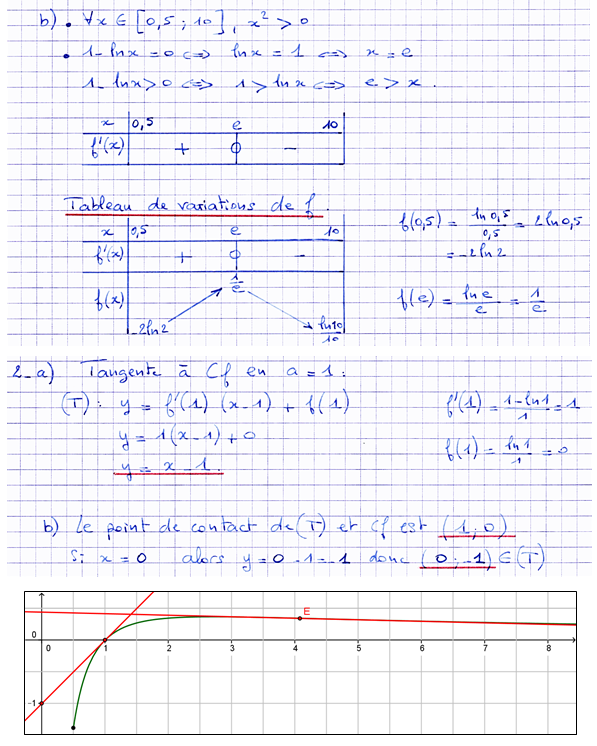 b) • ∀x ∈ [0,5 ; 10], x² > 0
• 1-lnx = 0 ⟺ lnx = 1 ⟺ x = e
1-lnx > 0 ⟺ 1 > lnx ⟺ e > x.
x 0,5 e 10
f'(x) + 0 -
Tableau de variations de f.
x 0,5 e 10
f'(x) + 0 -
f(x) -2ln2 1/e ln10/10
f(0,5) = ln0,5/0,5 = 2ln0,5
= -2ln2
f(e) = lne/e = 1/e
2-a) Tangente à Cf en a = 1 :
(T) : y = f'(1) (x-1) + f(1)
y = 1(x-1) + 0
y = x-1.
f'(1) = 1-ln1/1 = 1
f(1) = ln1/1 = 0
b) Le point de contact de (T) et Cf est (1;0)
Si x = 0 alors y = 0-1 = -1 donc (0;-1) ∈ (T)
E
0
0 1 2 3 4 5 6 7 8
-1